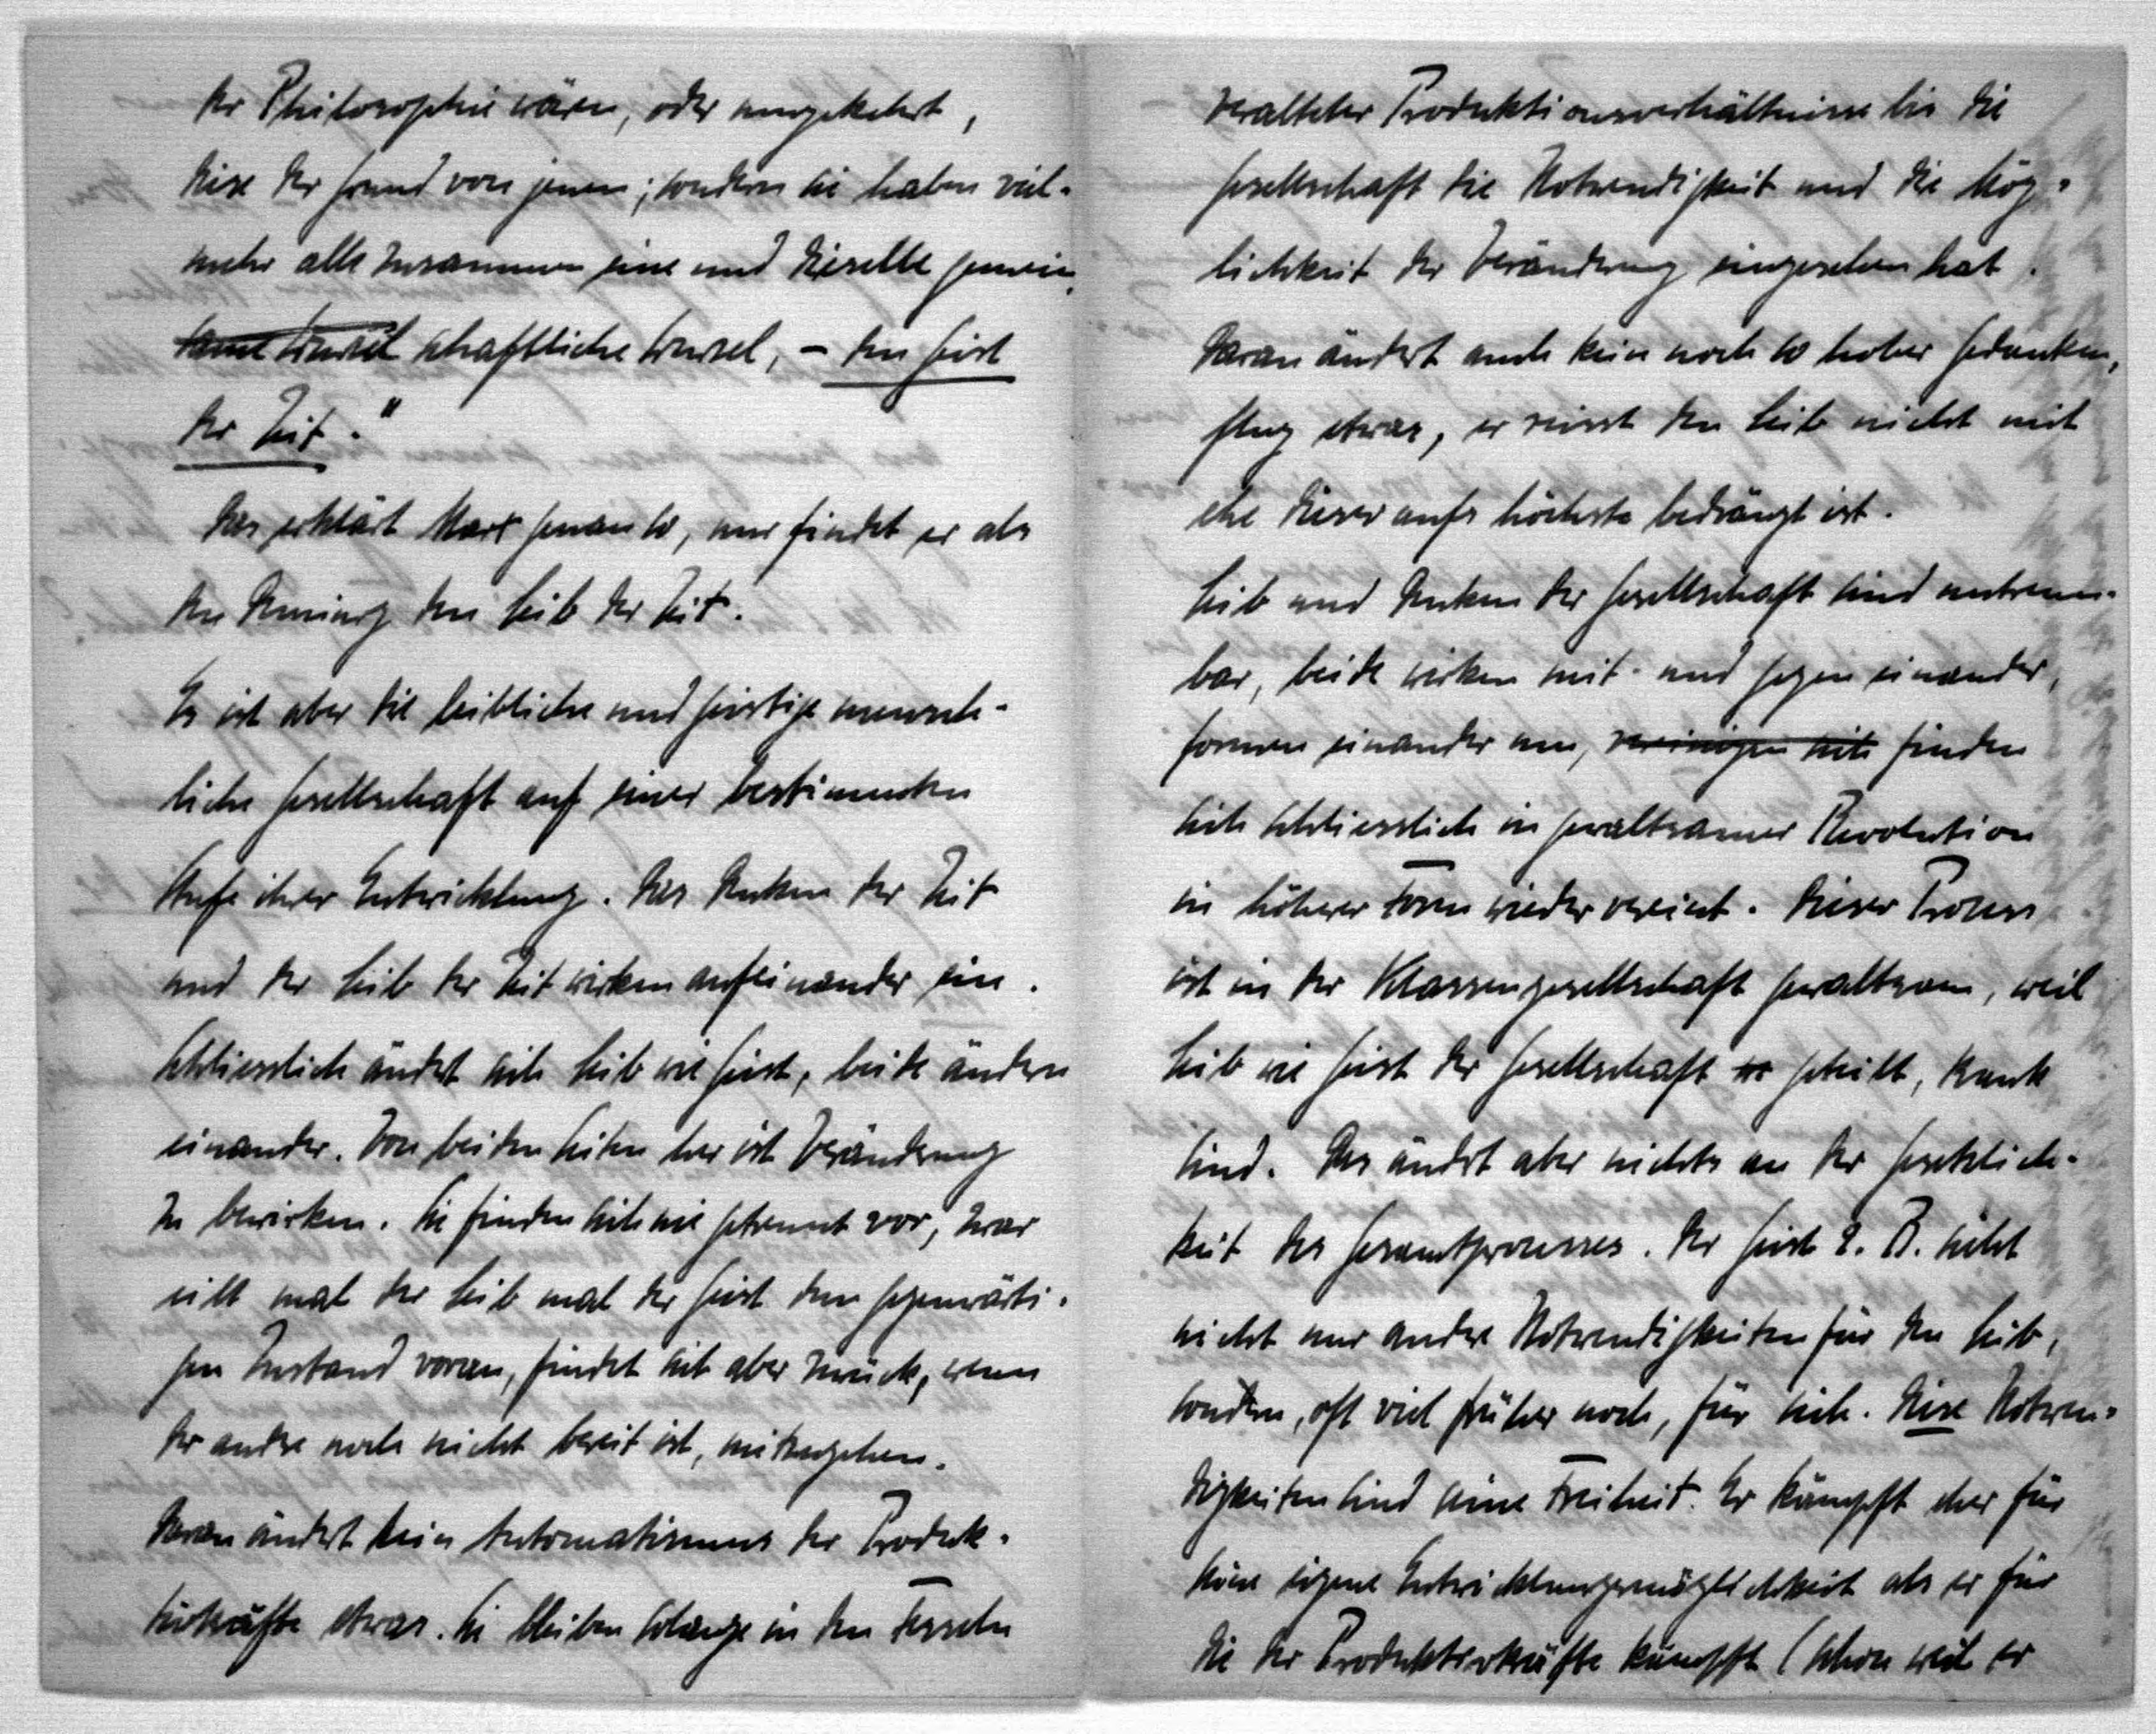 der Philosophie wären, oder umgekehrt,
diese der Grund von jenen; sondern sie haben viel-
mehr alle zusammen eine und dieselbe gemein-
same Wurzel schaftliche Wurzel, – den Geist
der Zeit."
Das erklärt Marx genau so, nur findet er als
den Demiurg den Leib der Zeit.
Es ist aber die leibliche und geistige mensch-
liche Gesellschaft auf einer bestimmten
Stufe ihrer Entwicklung. Das Denken der Zeit
und der Leib der Zeit wirken aufeinander ein.
Schliesslich ändert sich Leib wie Geist, beide ändern
einander. Von beiden Seiten her ist Veränderung
zu bewirken. Sie finden sich nie getrennt vor, zwar
eilt mal der Leib mal der Geist dem gegenwärti-
gen Zustand voran, findet sich aber zurück, wenn
der andre noch nicht bereit ist, mitzugehen.
Daran ändert kein Automatismus der Produk-
tivkräfte etwas. Sie bleiben solange in den Fesseln
veralteter Produktionsverhältnisse bis die
Gesellschaft die Notwendigkeit und die Mög-
lichkeit der Veränderung eingesehen hat.
Daran ändert auch kein noch so hoher Gedanken-
flug etwas, er reisst den Leib nicht mit
ehe dieser aufs höchste bedrängt ist.
Leib und Denken der Gesellschaft sind untrenn-
bar, beide wirken mit- und gegen einander,
formen einander um, vereinigen sich finden
sich schliesslich in gewaltsamer Revolution
in höherer Form wieder vereint. Dieser Prozess
ist in der Klassengesellschaft gewaltsam, weil
Leib wie Geist der Gesellschaft geteilt, krank
sind. Das ändert aber nichts an der Gesetzlich-
keit des Gesamtprozesses. Der Geist z. B. sieht
nicht nur andre Notwendigkeiten für den Leib,
sondern, oft viel früher noch, für sich. Diese Notwen-
digkeiten sind seine Freiheit. Er kämpft eher für
seine eigene Entwicklungsmöglichkeit als er für
die der Produktivkräfte kämpft (schon weil er